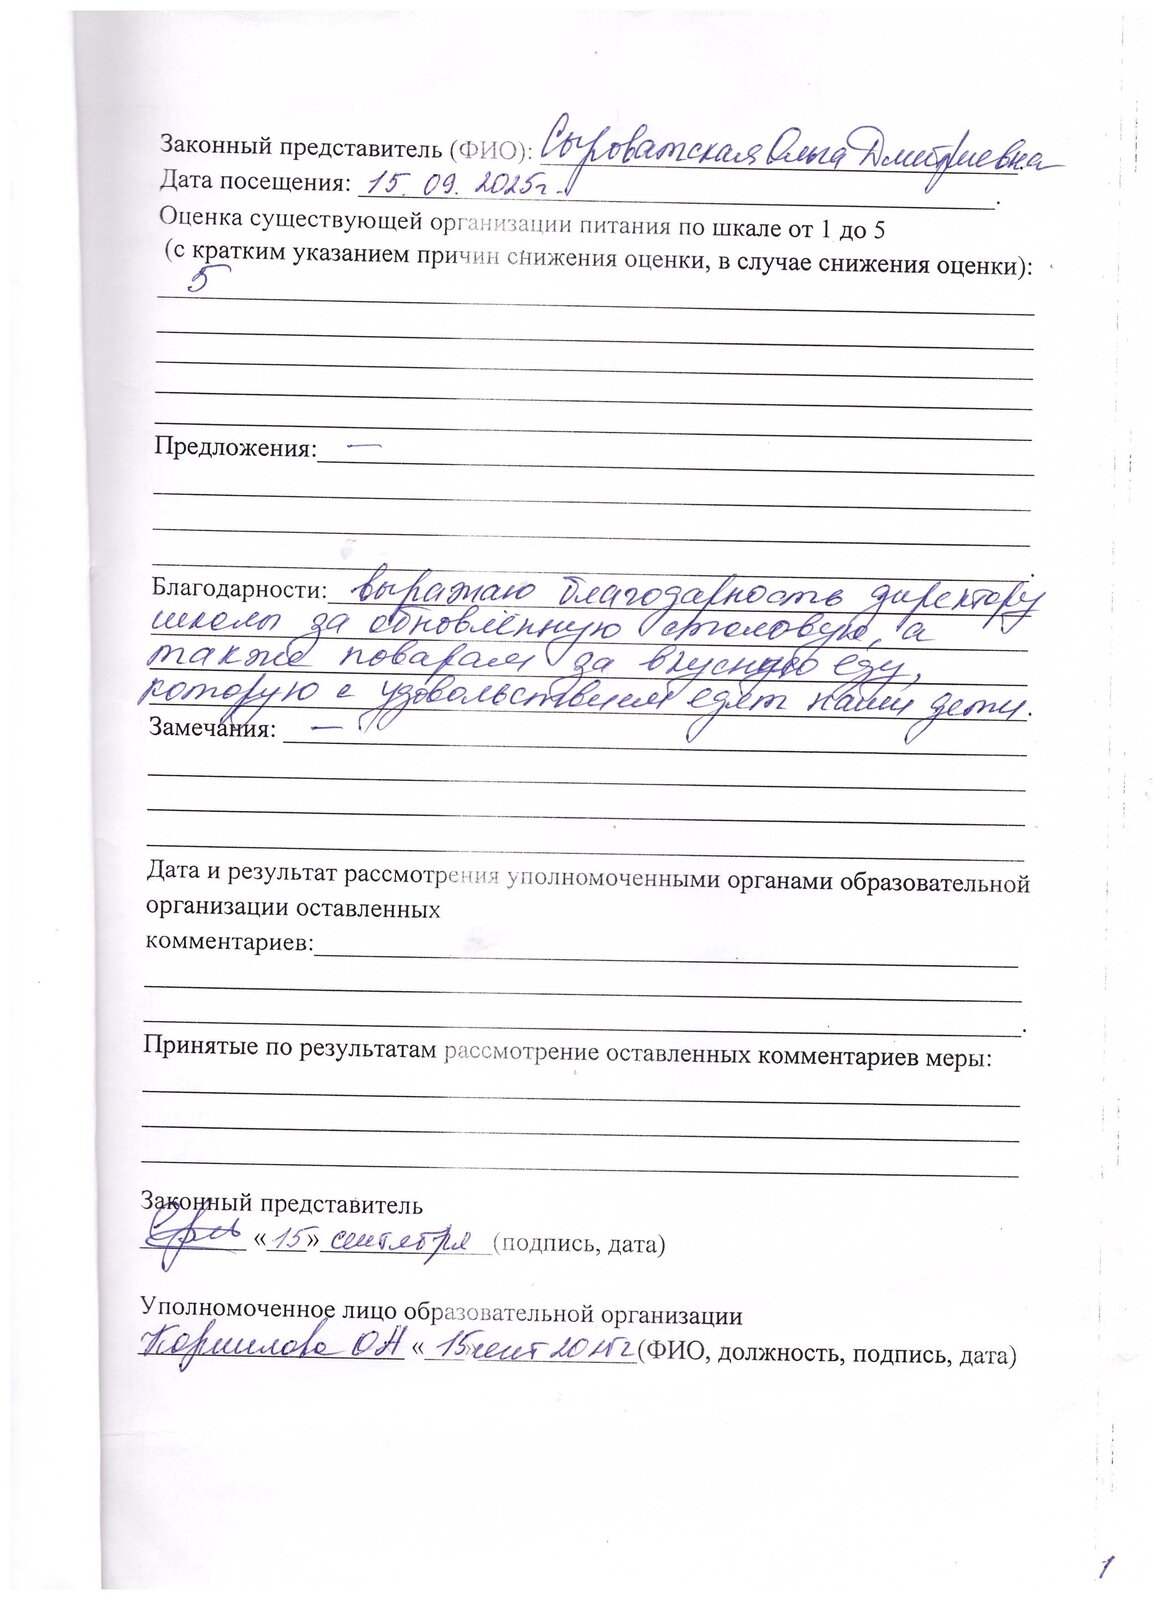 Законный представитель (ФИО): Сыроватская Ольга Дмитриевна
Дата посещения: 15. 09. 2025г.
Оценка существующей организации питания по шкале от 1 до 5
(с кратким указанием причин снижения оценки, в случае снижения оценки):
5
Предложения: —
Благодарности: выражаю благодарность директору
школы за обновлённую столовую, а
также поварам за вкусную еду,
которую с удовольствием едят наши дети.
Замечания: —
Дата и результат рассмотрения уполномоченными органами образовательной
организации оставленных
комментариев:
Принятые по результатам рассмотрение оставленных комментариев меры:
Законный представитель
«15» сентября (подпись, дата)
Уполномоченное лицо образовательной организации
Корнилова ОН « 15 сент 2025г (ФИО, должность, подпись, дата)
1